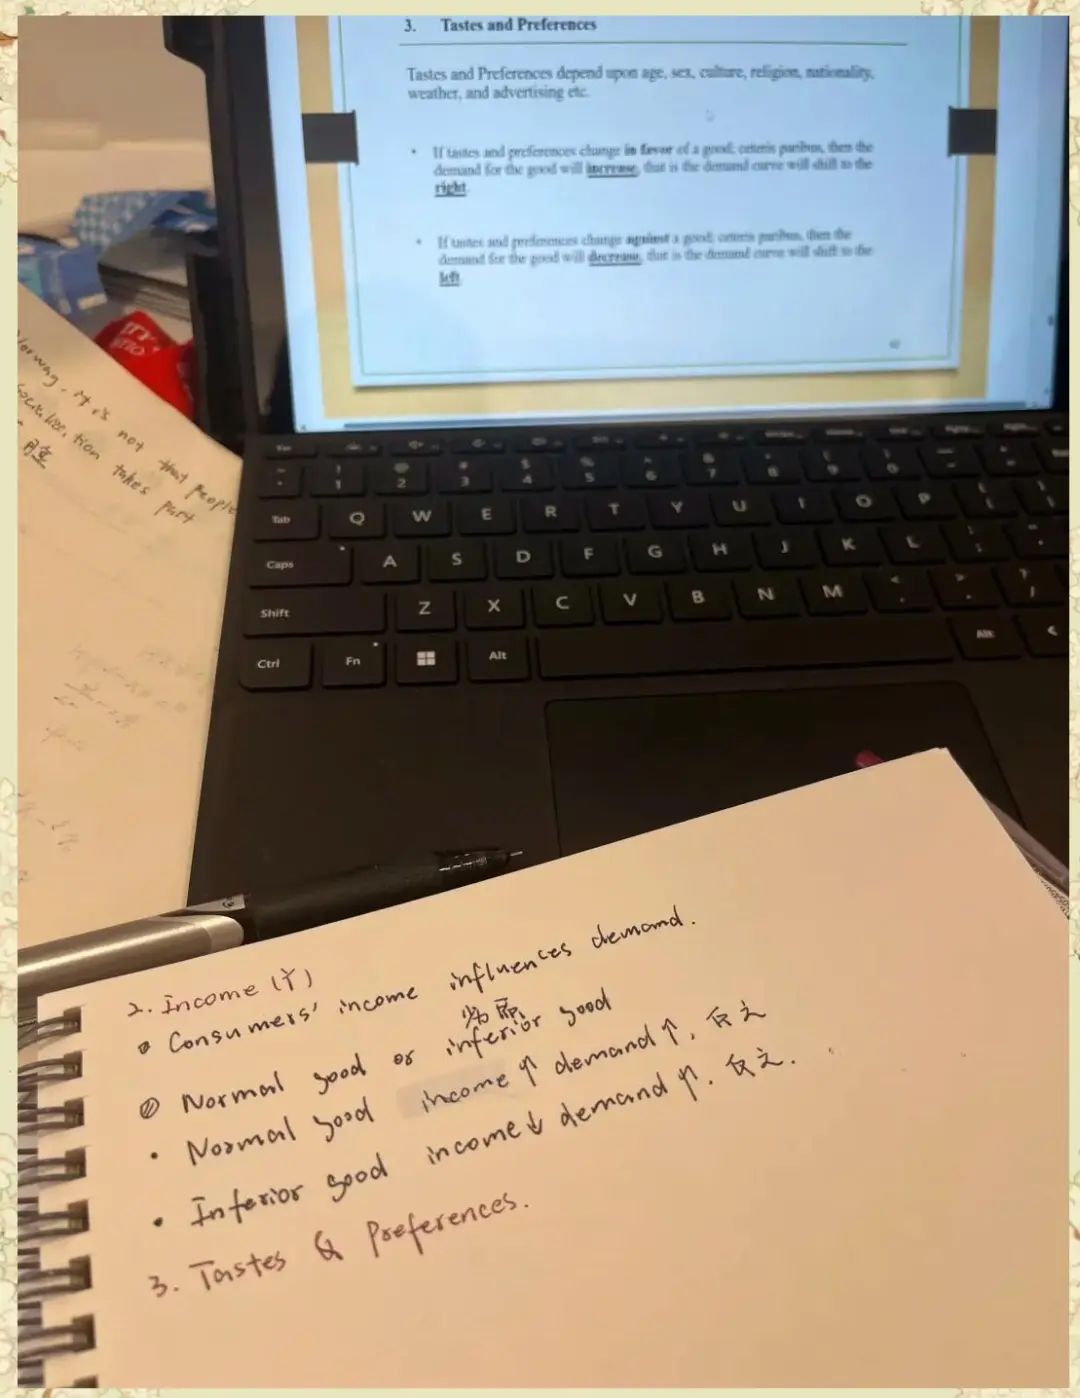 3. Tastes and Preferences
Tastes and Preferences depend upon age, sex, culture, religion, nationality,
weather, and advertising etc.
• If tastes and preferences change in favor of a good; ceteris paribus, then the
demand for the good will increase, that is the demand curve will shift to the
right.
• If tastes and preferences change against a good; ceteris paribus, then the
demand for the good will decrease, that is the demand curve will shift to the
left.
it is not that people
tion takes part
1 2 3 4 5 6 7 8 9 0
Tab Q W E R T Y U I O P
Caps A S D F G H J K L
Shift Z X C V B N M
Ctrl Fn Alt Alt
2. Income (Y)
• Consumers' income influences demand.
Normal good or inferior good
• Normal good income ↑ demand ↑, 反之
• Inferior good income ↓ demand ↑. 反之.
3. Tastes & Preferences.